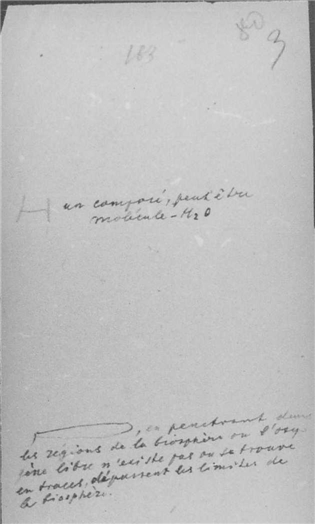 163
3
un composé, peut être
molécule - H2O
, en penetrant dans
les régions de la biosphère ou l'oxy
gène libre n'existe pas ou se trouve
en traces, dépassent les limites de
la biosphère.